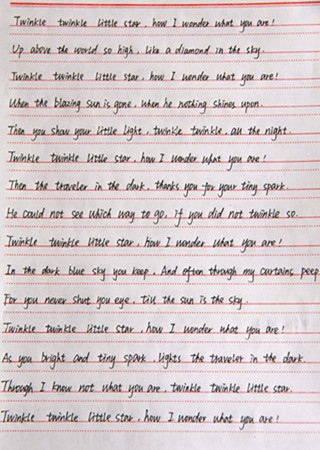 Twinkle twinkle little star, how I wonder what you are!
Up above the world so high, like a diamond in the sky.
Twinkle twinkle little star, how I wonder what you are!
When the blazing sun is gone, when he nothing shines upon.
Then you show your little light, twinkle twinkle, all the night.
Twinkle twinkle little star, how I wonder what you are!
Then the traveler in the dark, thanks you for your tiny spark.
He could not see which way to go, if you did not twinkle so.
Twinkle twinkle little star, how I wonder what you are!
In the dark blue sky you keep, And often through my curtains peep
For you never shut you eye, Till the sun is the sky.
Twinkle twinkle little star, how I wonder what you are!
As you bright and tiny spark, lights the traveler in the dark.
Through I know not what you are, twinkle twinkle little star.
Twinkle twinkle little star, how I wonder what you are!